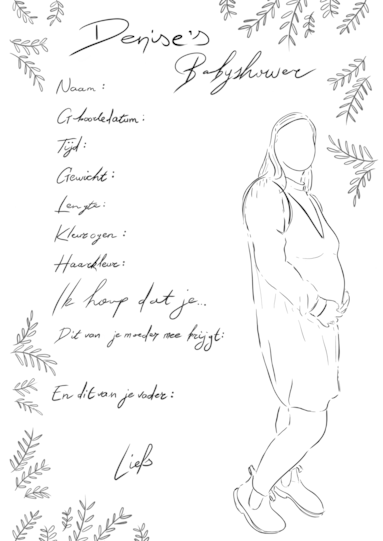 Denise's
Babyshower
Naam :
Geboortedatum :
Tijd :
Gewicht :
Lengte :
Kleur ogen :
Haarkleur :
Ik hoop dat je...
Dit van je moeder mee krijgt :
En dit van je vader :
Liefs